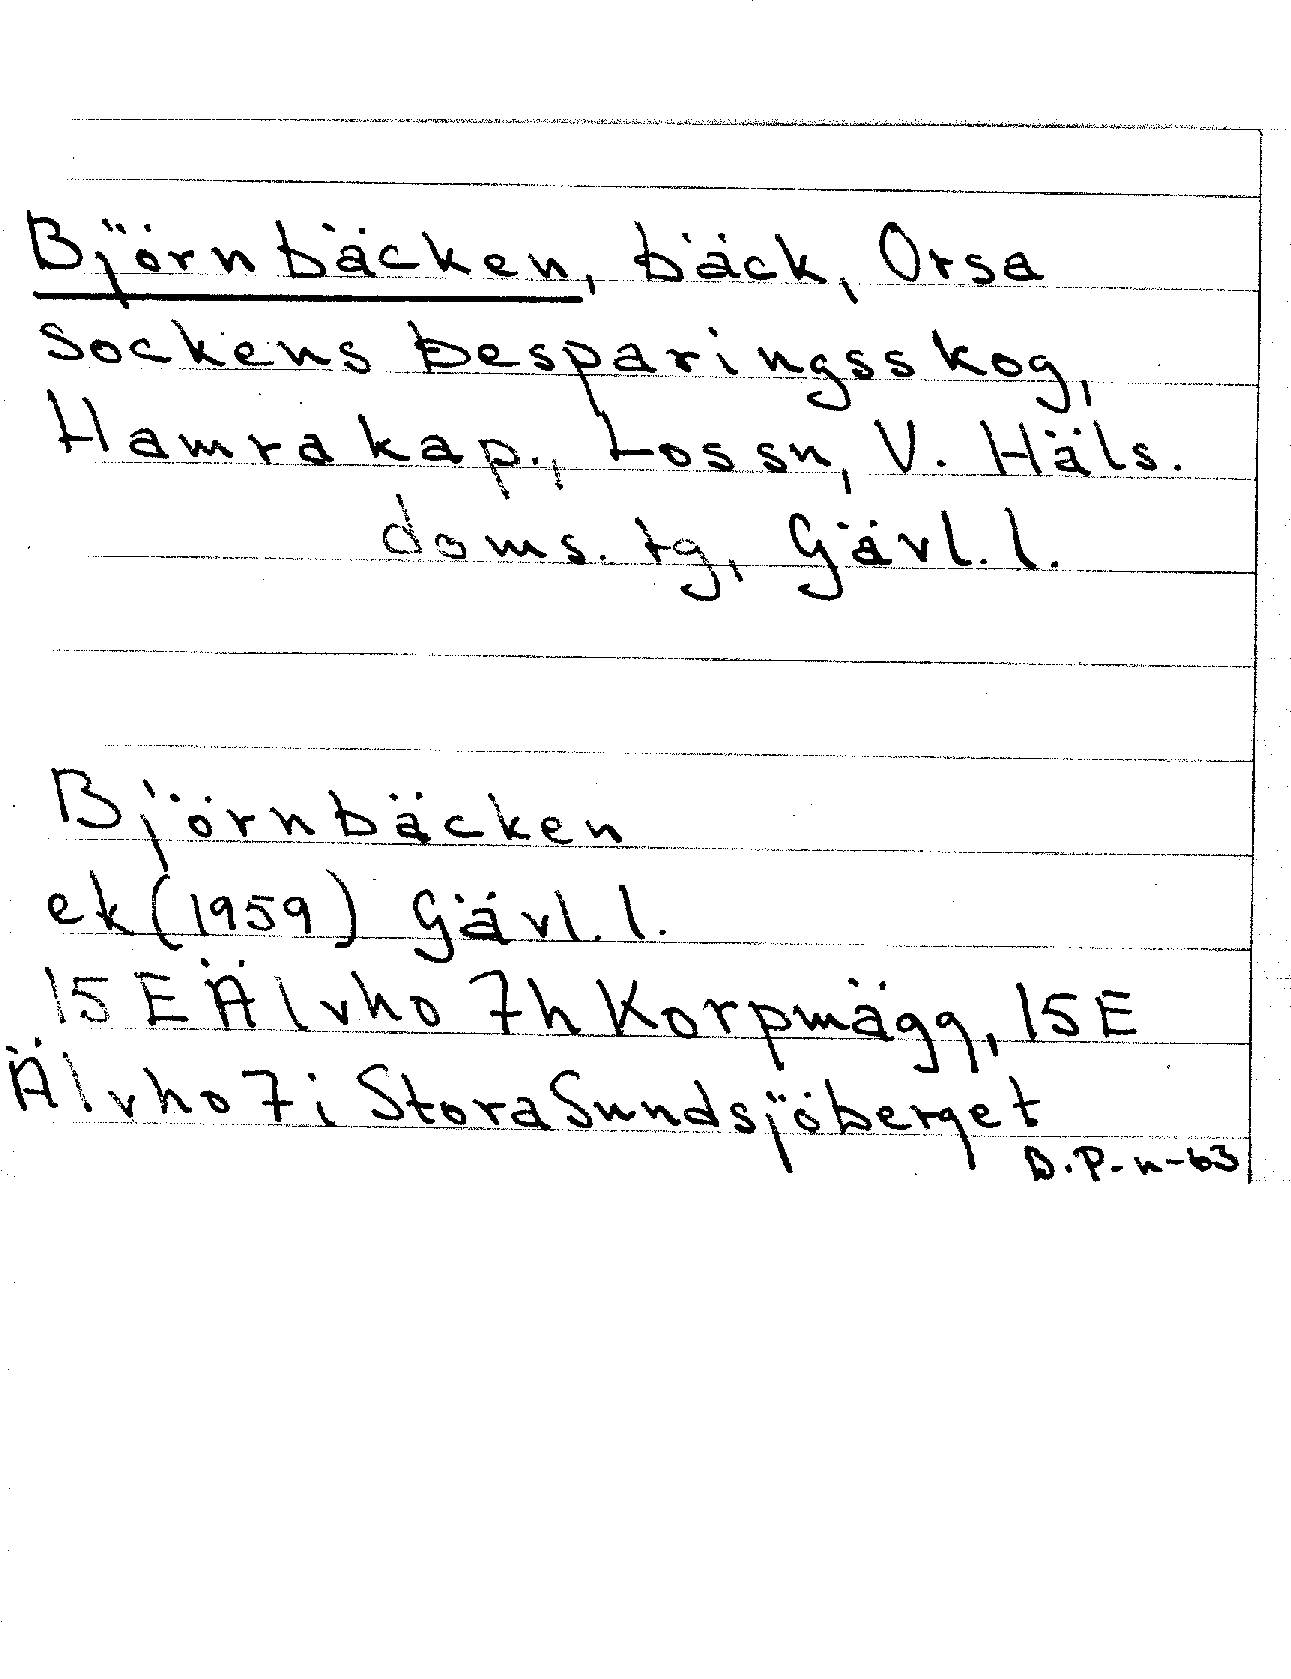 Björnbäcken, bäck, Orsa
Sockens besparingsskog,
Hamra kap., Los sn, V. Häls.
doms. tg, Gävl. l.
Björnbäcken
ek (1959) Gävl. l.
15 E Älvho 7h Korpmägg, 15 E
Älvho 7i Stora Sundsjöberget
B.P-n-63